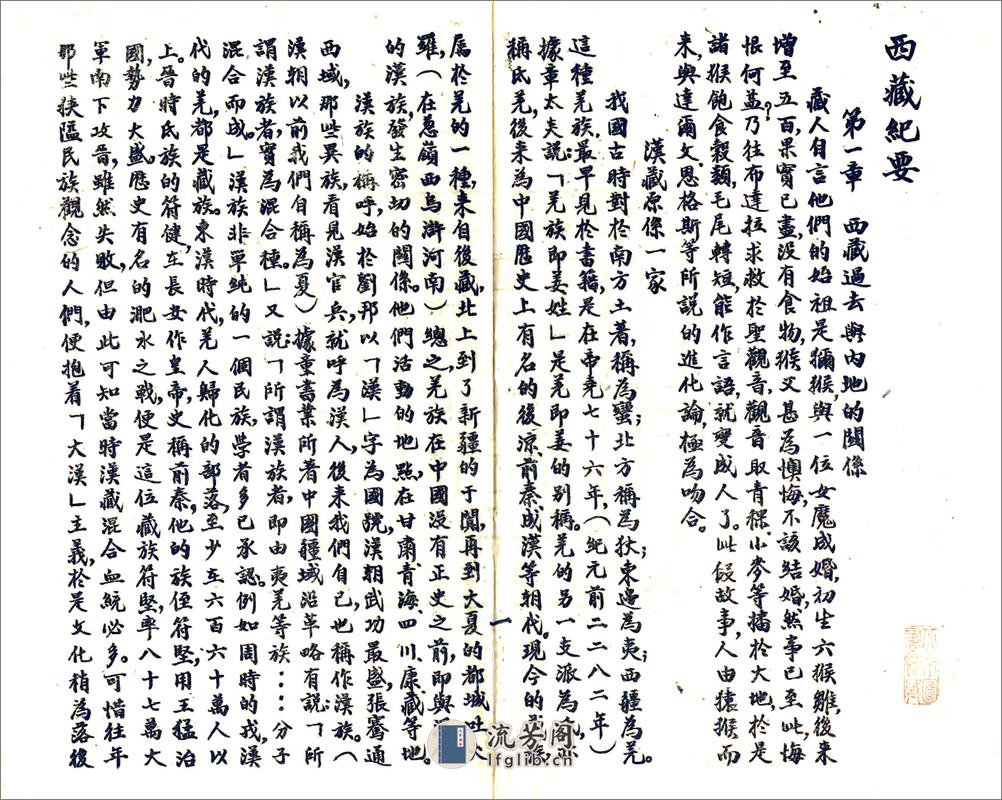 西藏紀要
第一章　西藏過去與內地的關係
藏人自言他們的始祖是獼猴，與一位女魔成婚，初生六猴雛，後來
增至五百，果實已盡，沒有食物，猴又甚為懊悔，不該結婚，然事已至此，悔
恨何益？乃往布達拉求救於聖觀音，觀音取青稞、小麥等播於大地，於是
諸猴飽食穀類，毛尾轉短，能作言語，就變成人了。此段故事，人由猿猴而
來，與達爾文、恩格斯等所說的進化論，極為吻合。
漢藏原係一家
我國古時對於南方土著，稱為蠻；北方稱為狄；東邊為夷；西疆為羌。
這種羌族，最早見於書籍，是在帝堯七十六年，（紀元前二二八二年）
據章太炎說：「羌族即姜姓」是羌即姜的別稱。羌的另一支派為
稱氐羌，後來為中國歷史上有名的後涼、前秦、成漢等朝代。現今的
屬於羌的一種，來自後藏，北上到了新疆的于闐，再到大夏的都城吐火
羅，（在蔥嶺西烏滸河南）總之，羌族在中國沒有正史之前，即與
的漢族，發生密切的關係。他們活動的地點，在甘肅、青海、四川、康藏等地。
漢族的稱呼，始於劉邦以「漢」字為國號，漢朝武功最盛，張騫通
西域，那些異族，看見漢官兵，就呼為漢人，後來我們自己，也稱作漢族。（
漢朝以前我們自稱為夏）據童書業所著中國疆域沿革略有說：「所
謂漢族者，實為混合種。」又說：「所謂漢族者，即由夷羌等族⋯⋯分子
混合而成。」漢族非單純的一個民族，學者多已承認。例如周時的戎，漢
代的羌，都是藏族。東漢時代，羌人歸化的部落，至少在六百六十萬人以
上。晉時氐族的符健，在長安作皇帝，史稱前秦，他的族侄符堅，用王猛治
國，勢力大盛。歷史有名的淝水之戰，便是這位藏族符堅，率八十七萬大
軍南下攻晉，雖然失敗，但由此可知當時漢藏混合血統必多。可惜往年
那些狹隘民族觀念的人們，便抱着「大漢」主義，於是文化稍為落後
一
流芳阁
lfglib.cn